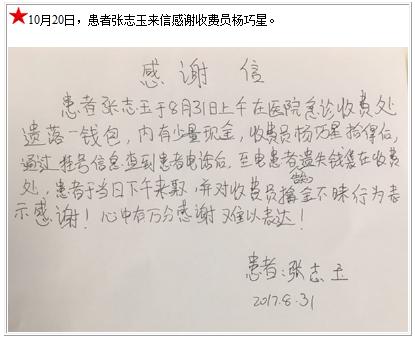 ★10月20日，患者张志玉来信感谢收费员杨巧星。
感谢信
患者张志玉于8月31日上午在医院急诊收费处
遗落一钱包，内有少量现金，收费员杨巧星拾得后，
通过挂号信息查到患者电话后，至电患者遗失钱包在收费
处，患者于当日下午来取，并对收费员拾金不昧行为表
示感谢！心中有万分感谢又难以表达！
患者：张志玉
2017.8.31